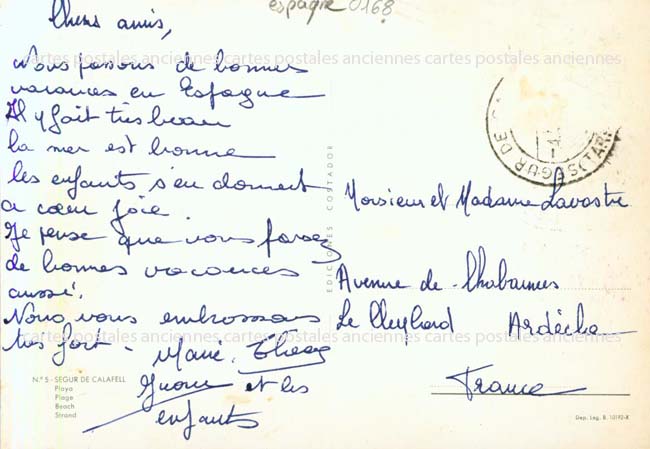 espagne 0168
Chers amis,
Nous passons de bonnes
vacances en Espagne
cartes postales anciennes cartes postales anciennes cartes postales anciennes
Il y fait très beau
la mer est bonne
les enfants s'en donnent
a cœur joie.
Je pense que vous passez
de bonnes vacances
aussi.
Nous vous embrassons
très fort - Marie.
et les
enfants
EDICIONES COSTADOR
SEGUR DE
Monsieur et Madame Lavastre
Avenue de
Le Cheylard Ardèche
France
cartes postales anciennes cartes postales anciennes cartes postales anciennes
N.º 5 - SEGUR DE CALAFELL
Playa
Plage
Beach
Strand
Dep. Leg. B. 10192-X